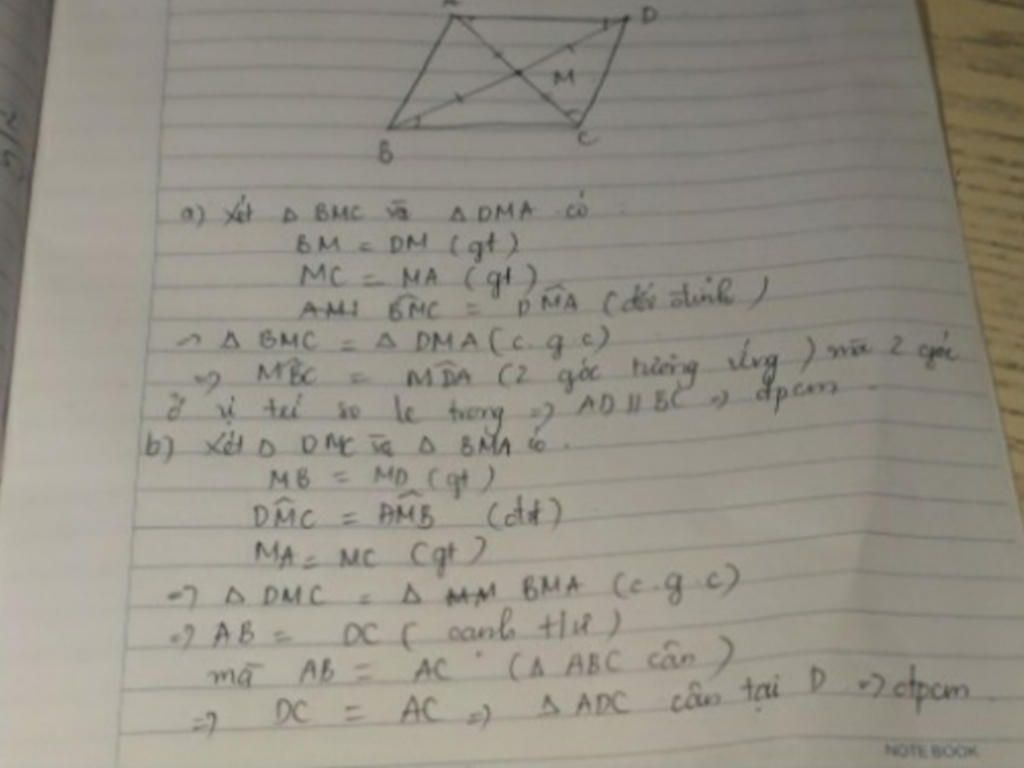 A
D
M
B
C
a) Xét Δ BMC và Δ DMA có :
BM = DM (gt)
MC = MA (gt)
BMC = DMA (đối đỉnh)
=> Δ BMC = Δ DMA (c.g.c)
=> MBC = MDA (2 góc tương ứng) mà 2 góc
ở vị trí so le trong => AD // BC => đpcm
b) Xét Δ DMC và Δ BMA có.
MB = MD (gt)
DMC = AMB (đđ)
MA = MC (gt)
=> Δ DMC = Δ BMA (c.g.c)
=> AB = DC (cạnh t/ư)
mà AB = AC (Δ ABC cân)
=> DC = AC => Δ ADC cân tại D => đpcm
NOTE BOOK